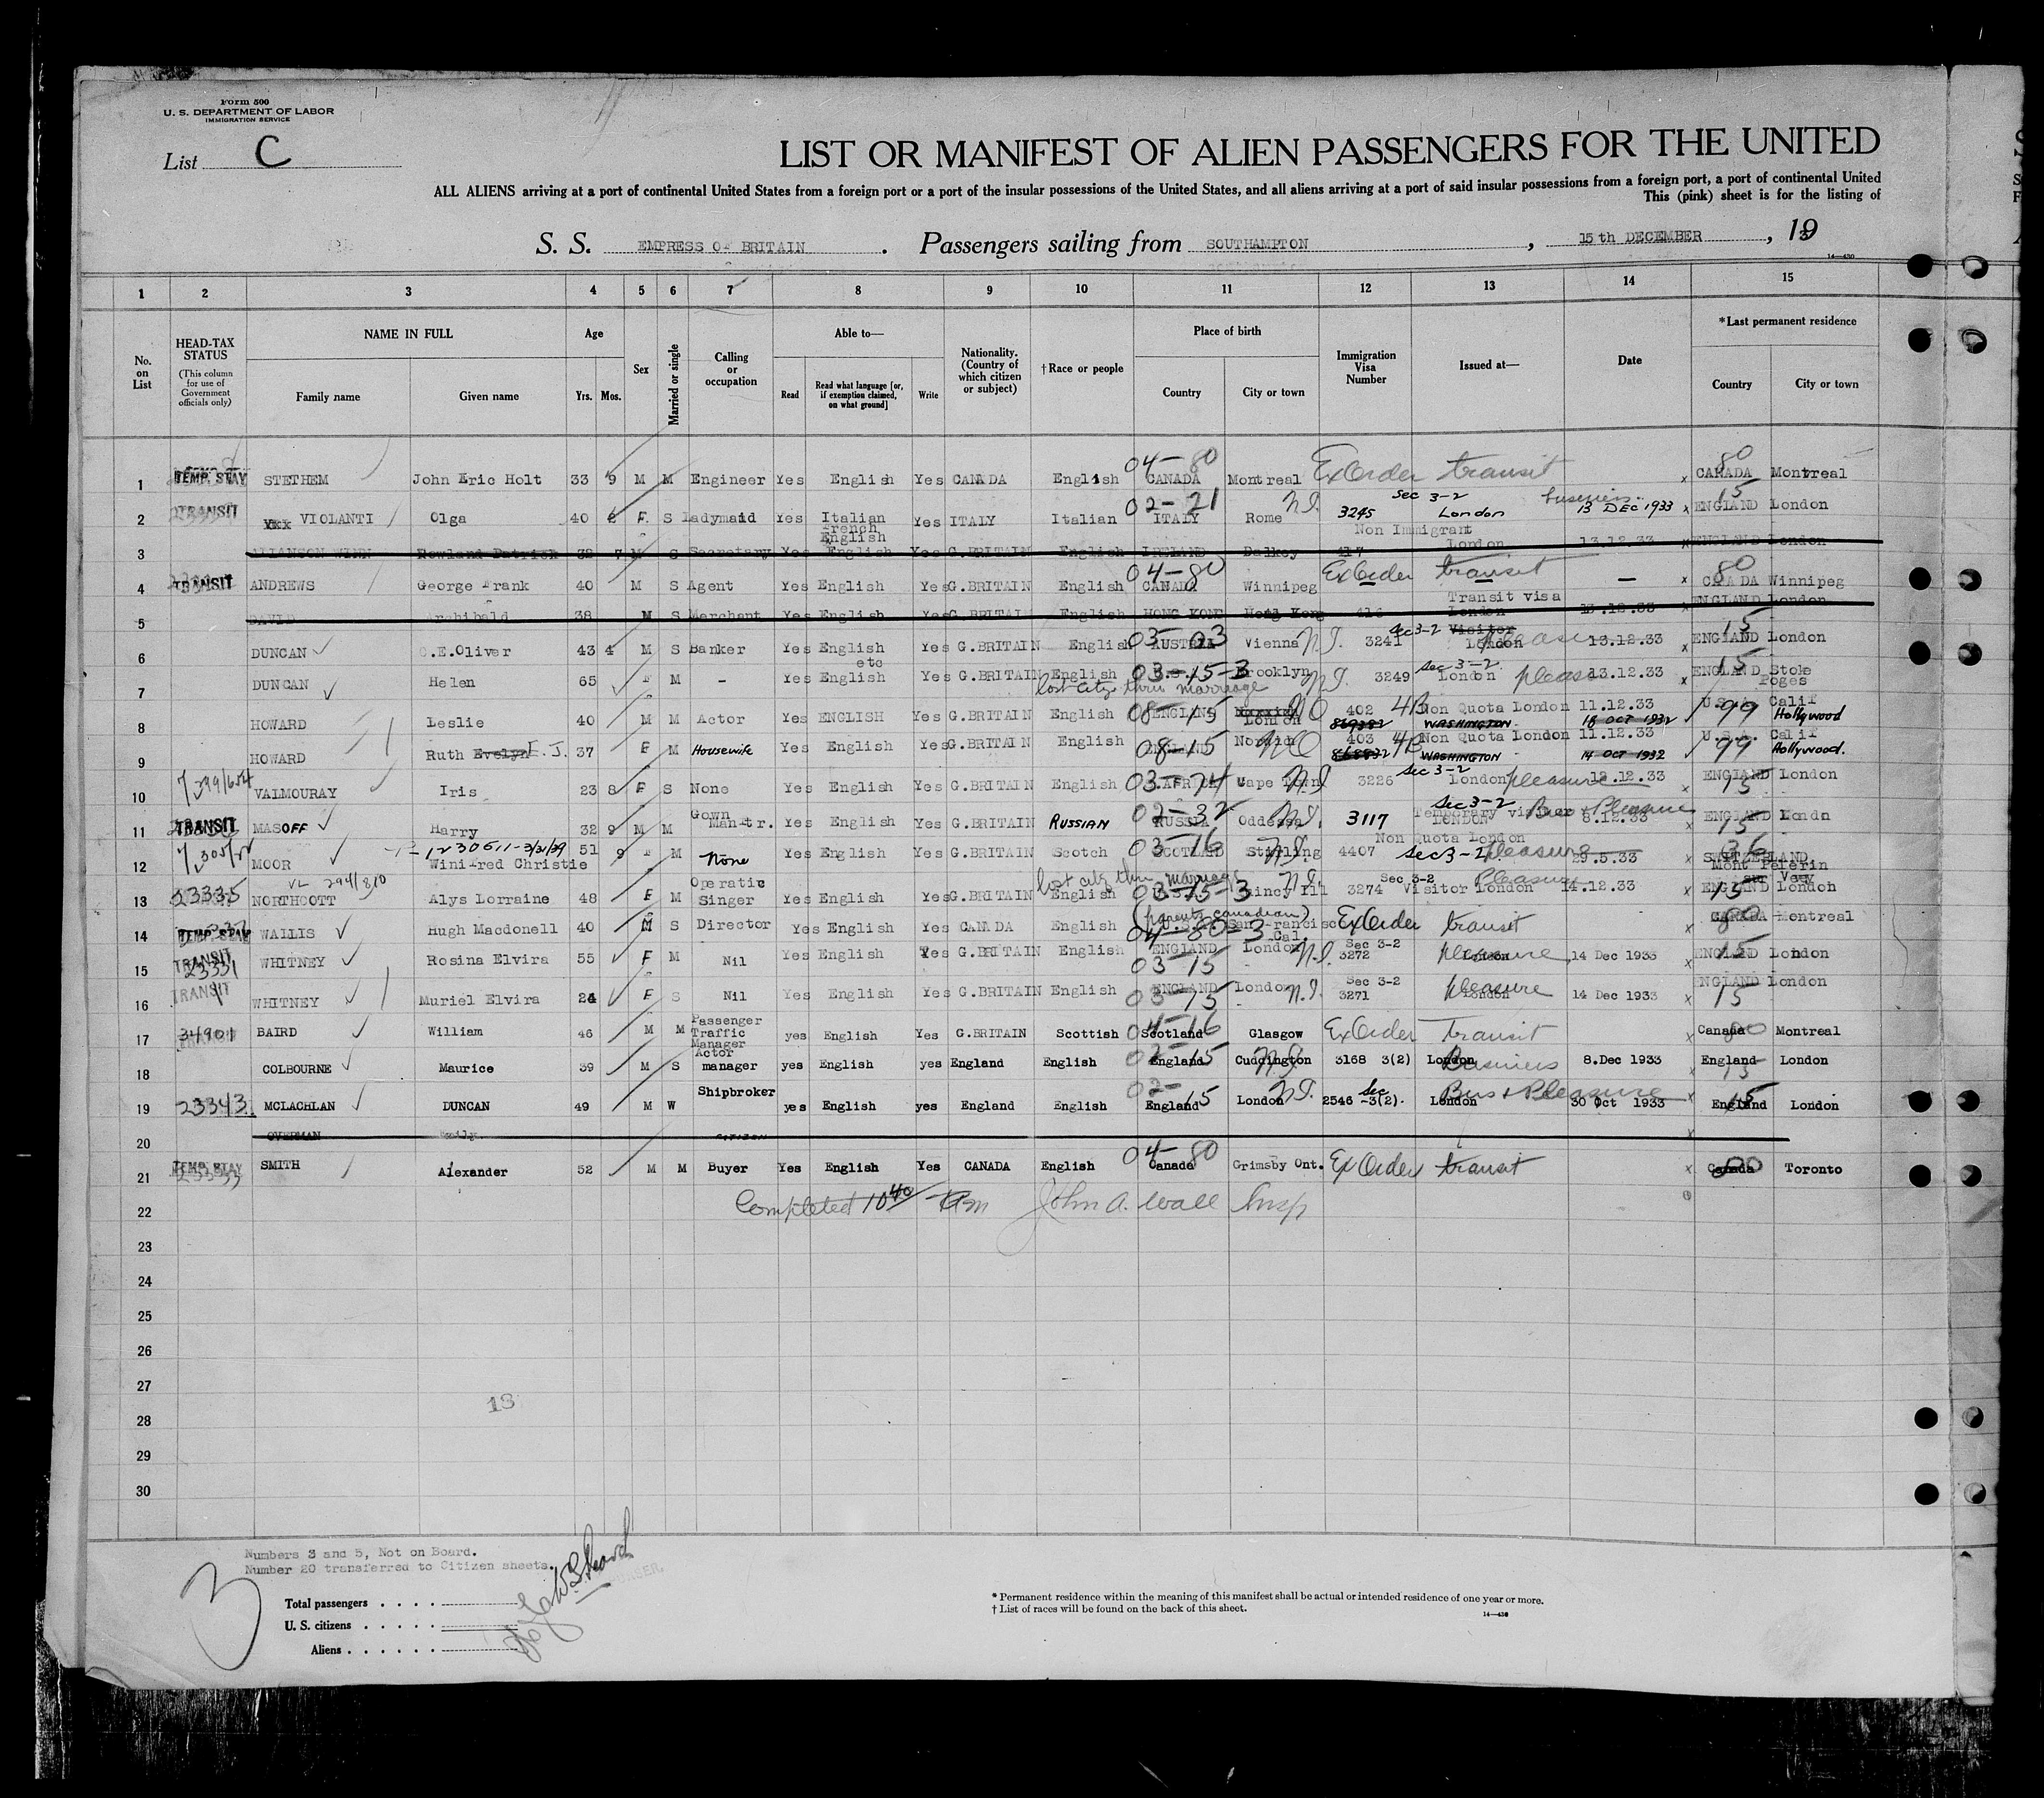 Form 500
U. S. DEPARTMENT OF LABOR
IMMIGRATION SERVICE
List C
LIST OR MANIFEST OF ALIEN PASSENGERS FOR THE UNITED
ALL ALIENS arriving at a port of continental United States from a foreign port or a port of the insular possessions of the United States, and all aliens arriving at a port of said insular possessions from a foreign port, a port of continental United
This (pink) sheet is for the listing of
S. S. EMPRESS OF BRITAIN. Passengers sailing from SOUTHAMPTON, 15th DECEMBER, 19
14—430
1 2 3 4 5 6 7 8 9 10 11 12 13 14 15
No. on List
HEAD-TAX STATUS (This column for use of Government officials only)
NAME IN FULL
Family name Given name
Age
Yrs. Mos.
Sex
Married or single
Calling or occupation
Able to—
Read Read what language [or, if exemption claimed, on what ground] Write
Nationality. (Country of which citizen or subject)
†Race or people
Place of birth
Country City or town
Immigration Visa Number
Issued at—
Date
*Last permanent residence
Country City or town
1 TEMP. STAY STETHEM John Eric Holt 33 9 M M Engineer Yes English Yes CANADA English 04-80 CANADA Montreal Ex Order transit x 80 CANADA Montreal
2 TRANSIT VIOLANTI Olga 40 F S Ladymaid Yes Italian French English Yes ITALY Italian 02-21 ITALY Rome N.I. 3245 Sec 3-2 London 13 DEC 1933 x 15 ENGLAND London
3 Rowland Patrick 38 7 M S Secretary Yes English Yes G.BRITAIN English IRELAND Dalkey 417 Non Immigrant London 13.12.33 x ENGLAND London
4 TRANSIT ANDREWS George Frank 40 M S Agent Yes English Yes G.BRITAIN English 04-80 CANADA Winnipeg Ex Order transit — x 80 CANADA Winnipeg
5 DAVID Archibald 38 M S Merchant Yes English Yes G.BRITAIN English HONG KONG Hong Kong 416 Transit visa London 13.12.33 ENGLAND London
6 DUNCAN O.E.Oliver 43 4 M S Banker Yes English etc Yes G.BRITAIN English 03-03 AUSTRIA Vienna N.I. 3241 Sec 3-2 Visitor London 13.12.33 x 15 ENGLAND London
7 DUNCAN Helen 65 F M - Yes English Yes G.BRITAIN English 03-15-3 Brooklyn N.I. 3249 Sec 3-2 London 13.12.33 x 15 ENGLAND Stoke Poges
lost citz thru marriage
8 HOWARD Leslie 40 M M Actor Yes ENGLISH Yes G.BRITAIN English 08-15 ENGLAND London NQ 402 4B Non Quota London 11.12.33 WASHINGTON 18 OCT 1932 U.S.A. 99 Calif Hollywood
9 HOWARD Ruth Evelyn 37 F M Housewife Yes English Yes G.BRITAIN English 08-15 ENGLAND NQ 403 4B Non Quota London 11.12.33 WASHINGTON 14 OCT 1932 U.S.A. 99 Calif Hollywood.
10 VALMOURAY Iris 23 8 F S None Yes English Yes G.BRITAIN English 03-74 S.AFRICA Cape Town N.I. 3226 Sec 3-2 London pleasure 12.12.33 x 15 ENGLAND London
11 TRANSIT MASOFF Harry 32 9 M M Gown Man-tr. Yes English Yes G.BRITAIN RUSSIAN 02-32 RUSSIA Oddessa N.I. 3117 Sec 3-2 Temporary visitor LONDON Pleasure 8.12.33 x 15 ENGLAND London
12 MOOR Winifred Christie 51 9 F M None Yes English Yes G.BRITAIN Scotch 03-16 SCOTLAND Stirling 4407 Non Quota London Sec 3-2 pleasure 29.5.33 x 36 SWITZERLAND Mont Pelerin
13 23335 NORTHCOTT Alys Lorraine 48 F M Operatic Singer Yes English Yes G.BRITAIN English 03-15-3 N.I. 3274 Sec 3-2 Visitor London Pleasure 14.12.33 x 15 ENGLAND London
lost citz thru marriage
14 TEMP. STAY WALLIS Hugh Macdonell 40 M S Director Yes English Yes CANADA English (parents Canadian) 04-80-3 San Francisco Cal. Ex Order transit x CANADA Montreal
15 TRANSIT 23331 WHITNEY Rosina Elvira 55 F M Nil Yes English Yes G.BRITAIN English 03-15 ENGLAND London N.I. Sec 3-2 3272 London pleasure 14 Dec 1933 x 15 ENGLAND London
16 TRANSIT WHITNEY Muriel Elvira 24 F S Nil Yes English Yes G.BRITAIN English 03-15 ENGLAND London N.I. Sec 3-2 3271 London pleasure 14 Dec 1933 x 15 ENGLAND London
17 34901 BAIRD William 46 M M Passenger Traffic Manager yes English Yes G.BRITAIN Scottish 04-16 Scotland Glasgow Ex Order Transit Canada Montreal
18 COLBOURNE Maurice 39 M S Actor manager yes English yes England English 02-15 England Cuddington N.I. 3168 3(2) London Business 8.Dec 1933 x England London
19 23343 MCLACHLAN DUNCAN 49 M W Shipbroker yes English yes England English 02-15 England London N.I. 2546 Sec 3(2). London Bus + Pleasure 30 Oct 1933 x 15 England London
20 OVERMAN Emily x
21 TEMP. STAY SMITH Alexander 52 M M Buyer Yes English Yes CANADA English 04-80 Canada Grimsby Ont. Ex Order transit x Canada Toronto
22 Completed 10 40 John A. Wall Insp
23
24
25
26
27
28
29
30
13
Numbers 3 and 5, Not on Board.
Number 20 transferred to Citizen sheets.
3
Total passengers
U. S. citizens
Aliens
* Permanent residence within the meaning of this manifest shall be actual or intended residence of one year or more.
† List of races will be found on the back of this sheet.
14—430